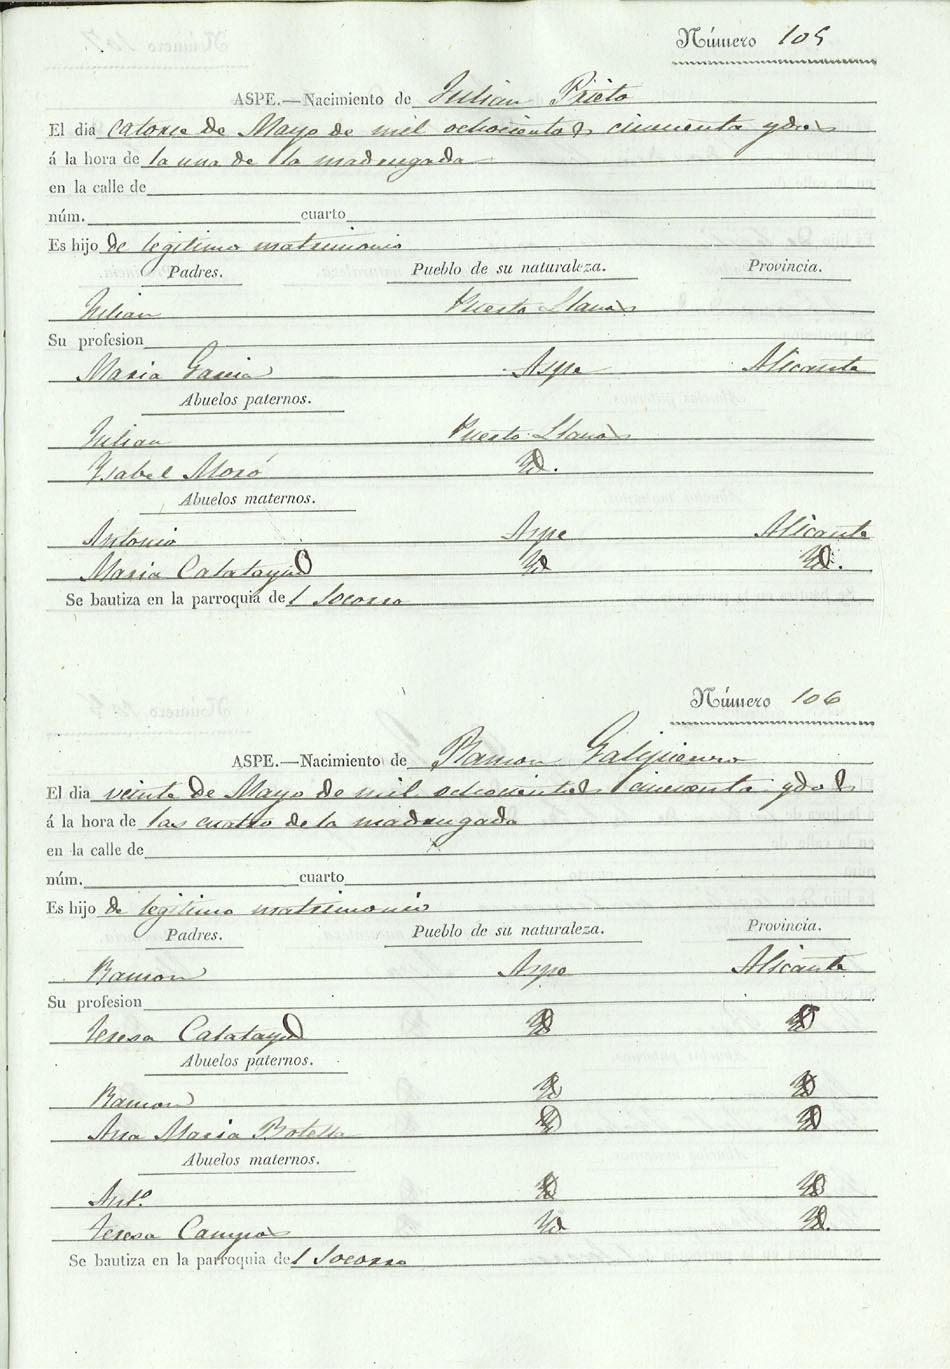 Número 105
ASPE.—Nacimiento de Julian Prieto
El dia catorce de Mayo de mil ochocientos cincuenta y dos
á la hora de la una de la madrugada
en la calle de
núm. cuarto
Es hijo de legitimo matrimonio
Padres. Pueblo de su naturaleza. Provincia.
Julian Puerto Llano
Su profesion
Maria Garcia Aspe Alicante
Abuelos paternos.
Julian Puerto Llano
Ysabel Moró Yd.
Abuelos maternos.
Antonio Aspe Alicante
Maria Calatayud Yd Yd.
Se bautiza en la parroquia del Socorro
Número 106
ASPE.—Nacimiento de Ramon
El dia veinte de Mayo de mil ochocientos cincuenta y dos
á la hora de las cuatro de la madrugada
en la calle de
núm. cuarto
Es hijo de legitimo matrimonio
Padres. Pueblo de su naturaleza. Provincia.
Ramon Aspe Alicante
Su profesion
Teresa Calatayud Yd Yd
Abuelos paternos.
Ramon Yd Yd
Ana Maria Botella Yd Yd
Abuelos maternos.
Antº Yd Yd
Teresa Campos Yd Yd.
Se bautiza en la parroquia del Socorro